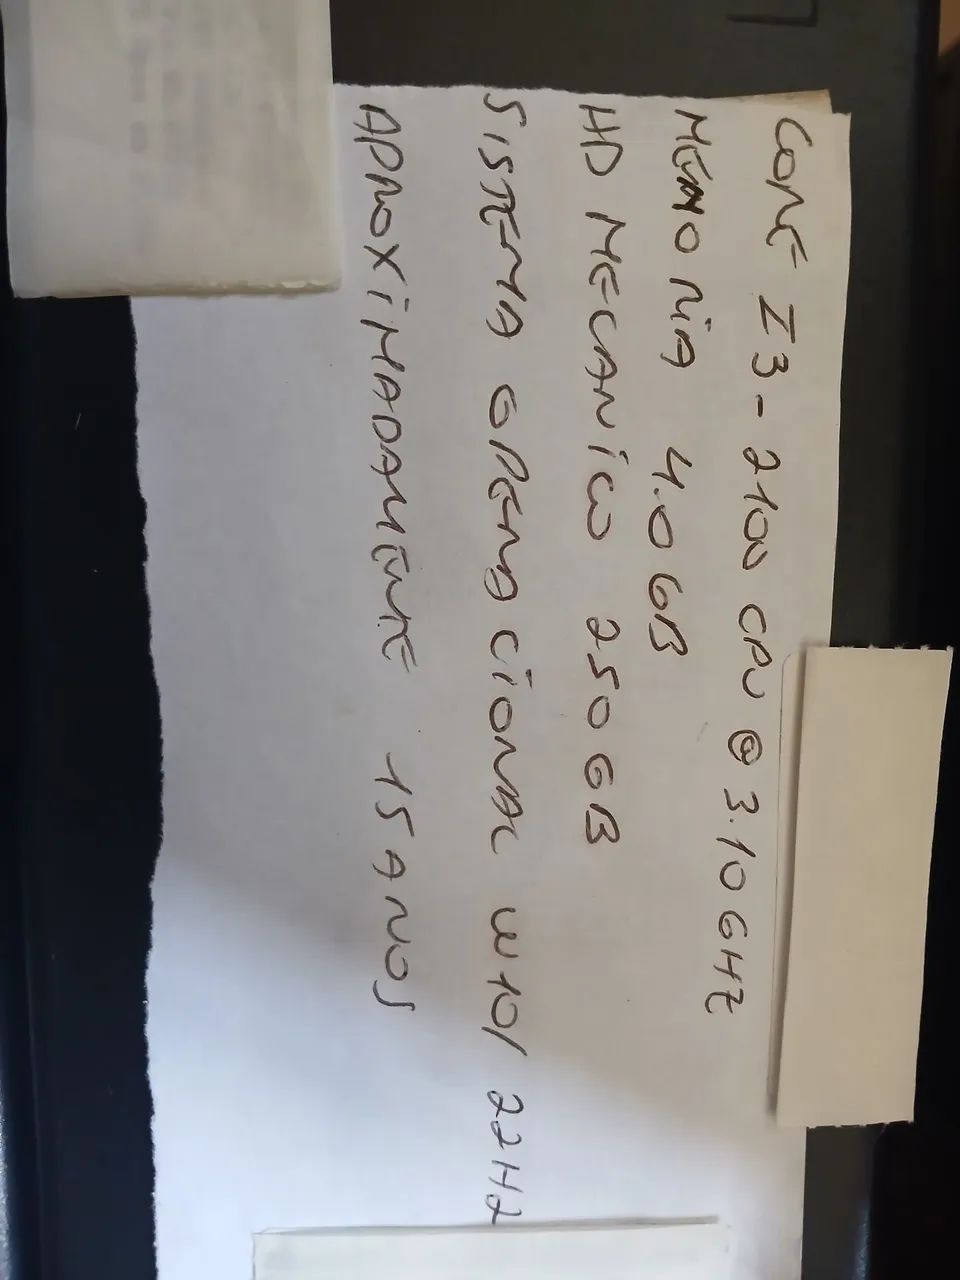 CORE I3-2100 CPU @ 3.10GHZ
MEMORIA 4.0GB
HD MECANICO 250GB
SISTEMA OPERACIONAL W10/22H2
APROXIMADAMENTE 15 ANOS